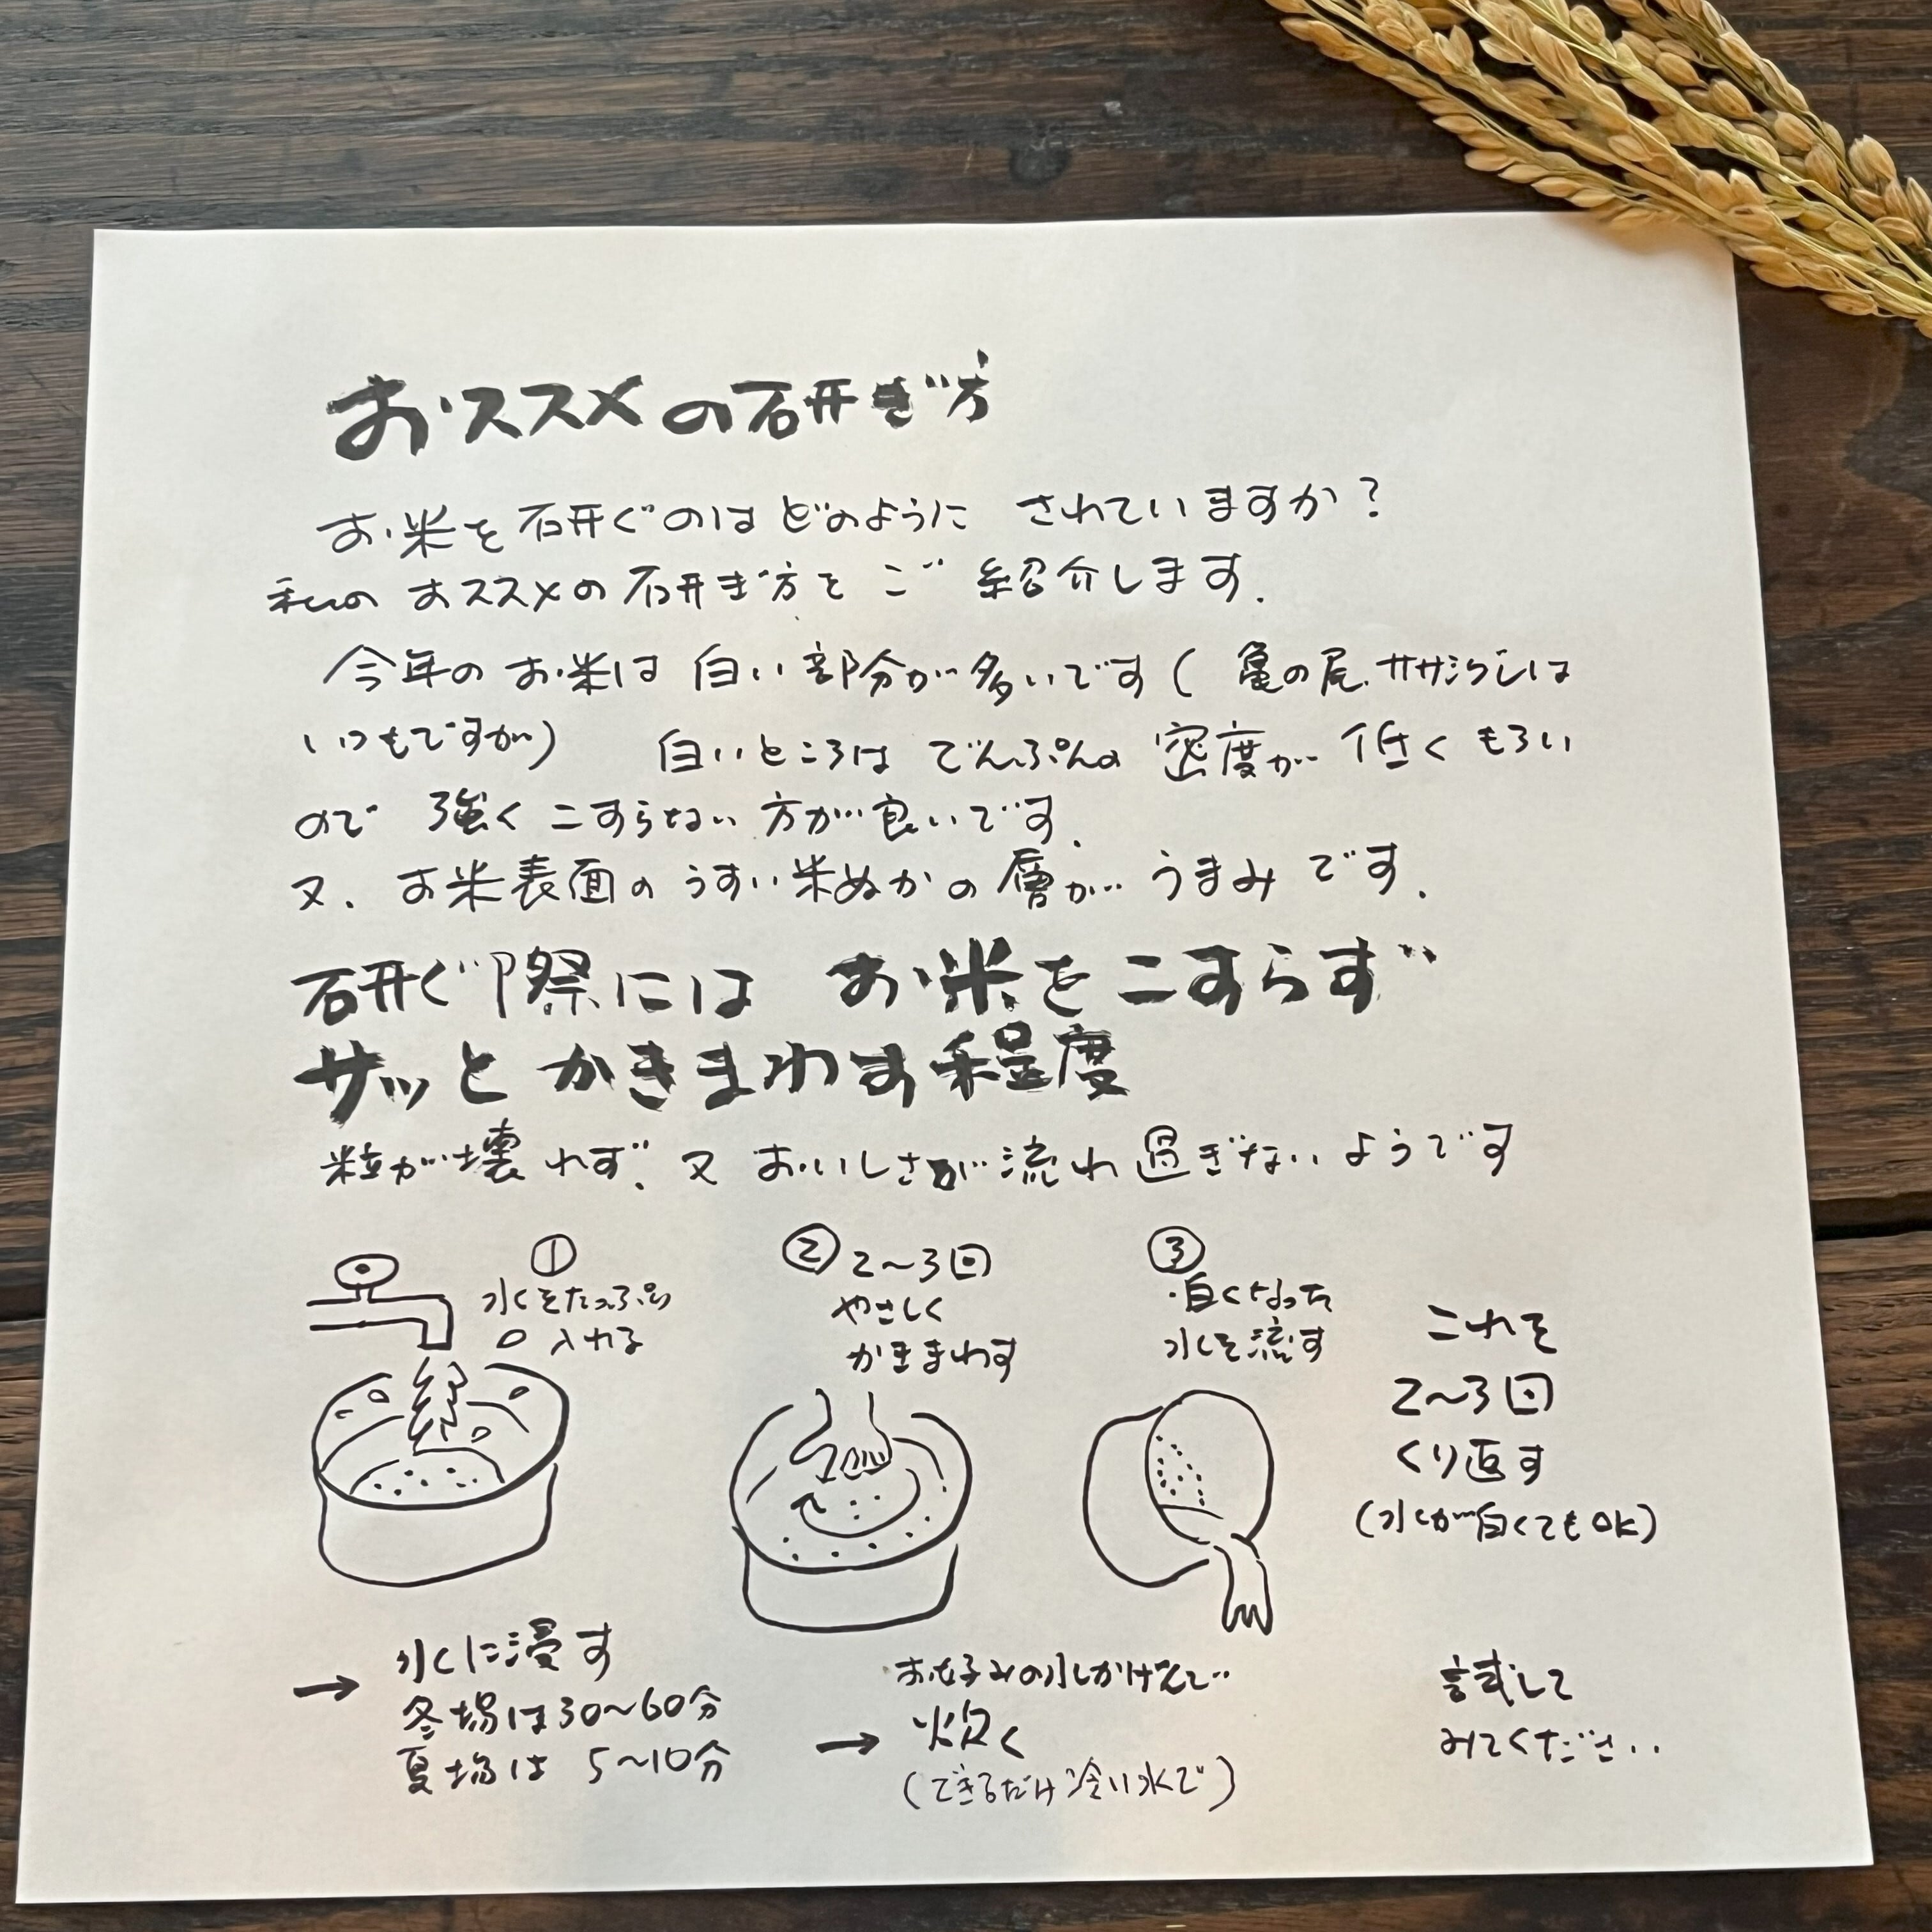 おススメの研ぎ方
お米を研ぐのはどのように されていますか?
私の おススメの研ぎ方を ご紹介します.
今年の お米は 白い部分が多いです(亀の尾.ササシグレは
いつもですが) 白いところは でんぷんの 密度が 低く もろい
ので 強く こすらない 方が良いです.
又. お米表面の うすい米ぬかの層が うまみ です.
研ぐ際には お米をこすらず
サッと かきまわす程度
粒が壊れず. 又 おいしさが流れ過ぎない ようです
①
水をたっぷり
入れる
② 2〜3回
やさしく
かきまわす
③
・白くなった
水を流す
これを
2〜3回
くり返す
(水が白くてもOK)
→ 水に浸す
冬場は30〜60分
夏場は 5〜10分
お好みの水かげんで
→ 炊く
(できるだけ冷い水で)
試して
みてください